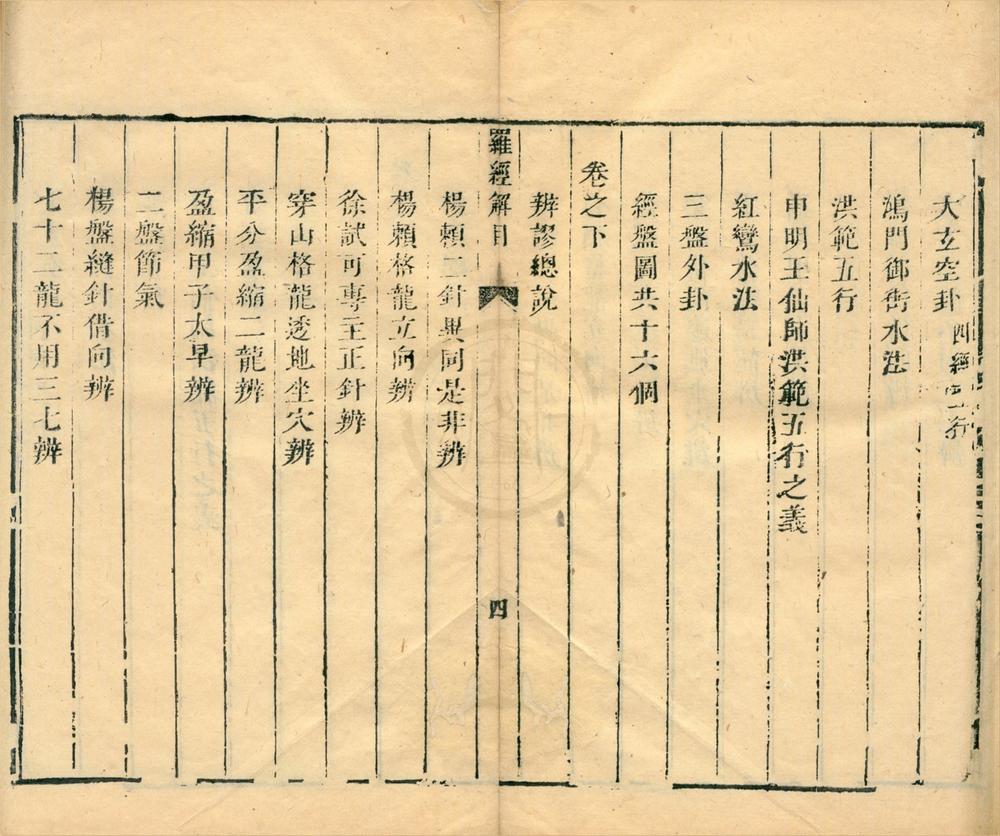 大玄空卦四經五行
鴻門御街水法
洪範五行
申明王仙師洪範五行之義
紅鸞水法
三盤外卦
經盤圖共十六個
卷之下
辨謬總說
羅經解目 四
楊賴二針異同是非辨
楊賴格龍立向辨
徐試可專主正針辨
穿山格龍透地坐穴辨
平分盈縮二龍辨
盈縮甲子太早辨
二盤節氣
楊盤縫針借向辨
七十二龍不用三七辨